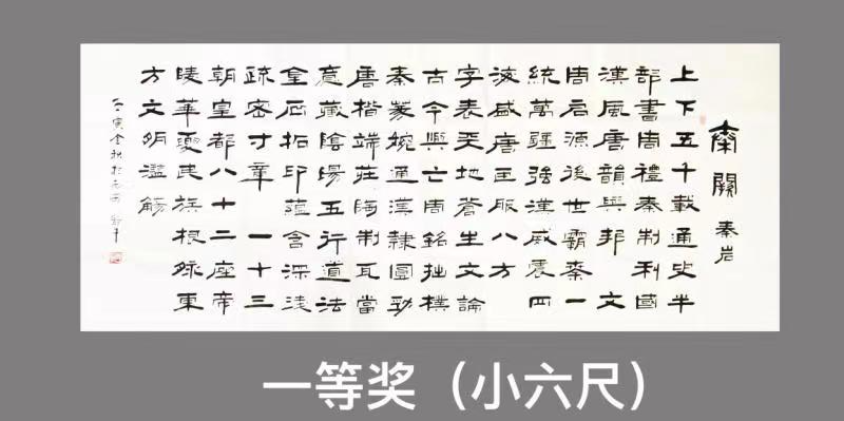 秦闕 秦岩
上下五千載通史半
部書周禮秦制利國
漢風唐韻興邦 文
周啟源後世霸秦一
統萬疆强漢威震四
海盛唐王服八方
字表天地蒼生文論
古今興亡周銘拙樸
秦篆婉通漢隸圓勁
唐楷端莊陶制瓦當
意藏陰陽五行道法
金石拓印蘊含深淺
疏密寸章 一十三
朝皇都八十二座帝
陵華夏民族根緣東
方文明濫觴
壬寅金秋於西安
一等奖（小六尺）